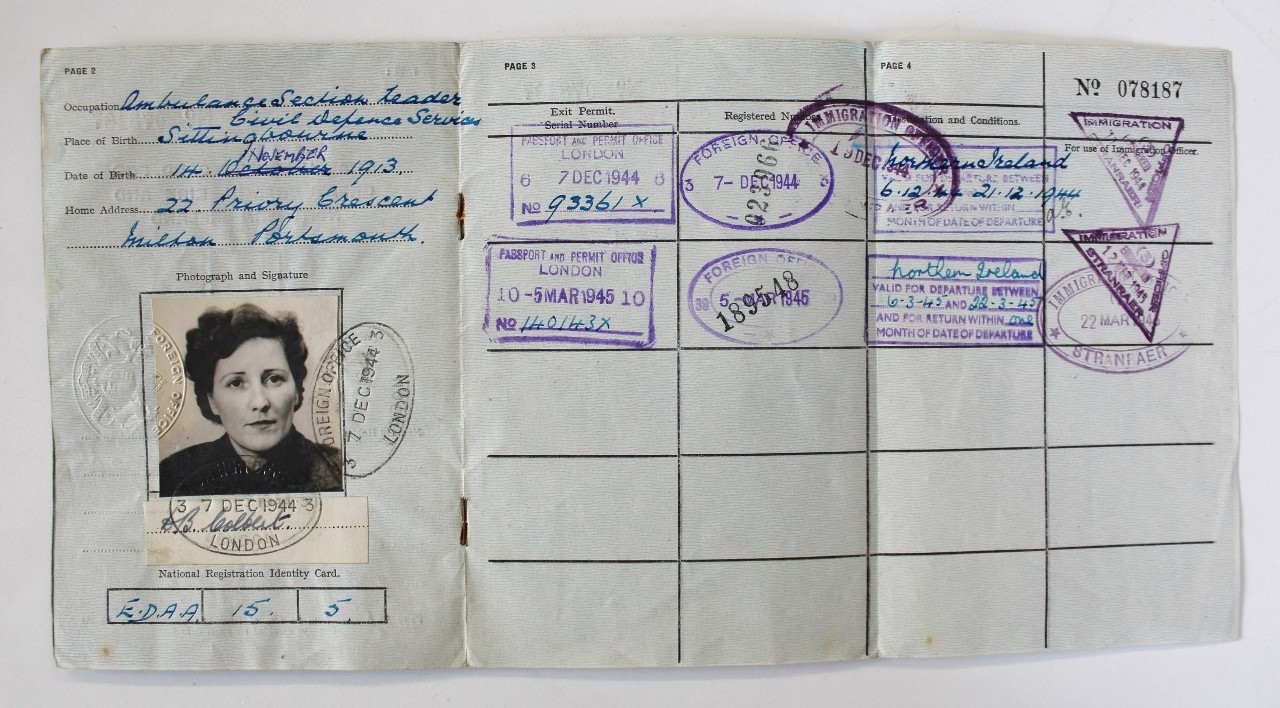 PAGE 2
Occupation Ambulance Section Leader
Civil Defence Services
Place of Birth Sittingbourne
NOVEMBER
Date of Birth 14 October 1913.
Home Address 22 Priory Crescent
Milton Portsmouth.
Photograph and Signature
FOREIGN OFFICE
FOREIGN OFFICE
3 7 DEC 1944 3
LONDON
3 7 DEC 1944 3
B. Colbert.
LONDON
National Registration Identity Card.
E.D.A.A. 15. 5.
PAGE 3
Exit Permit.
Serial Number.
Registered
PASSPORT AND PERMIT OFFICE
LONDON
6 7 DEC 1944 6
No 93361 X
FOREIGN OFFICE
3 7- DEC 1944 3
923966
PASSPORT AND PERMIT OFFICE
LONDON
10 -5 MAR 1945 10
No 140143X
FOREIGN
5- MAR 1945
189548
PAGE 4
No 078187
and Conditions.
For use of Immigration Officer.
IMMIGRATION
DEC 1944
Northern Ireland
FOR DEPARTURE BETWEEN
6.12.44 21.12.1944
AND FOR RETURN WITHIN
MONTH OF DATE OF DEPARTURE
IMMIGRATION
DEC 1944
STRANRAER
Northern Ireland
VALID FOR DEPARTURE BETWEEN
6-3-45 AND 22-3-45
AND FOR RETURN WITHIN one
MONTH OF DATE OF DEPARTURE
IMMIGRATION OFFICER
12 MAR 1945
STRANRAER
IMMIGRATION
22 MAR
STRANRAER